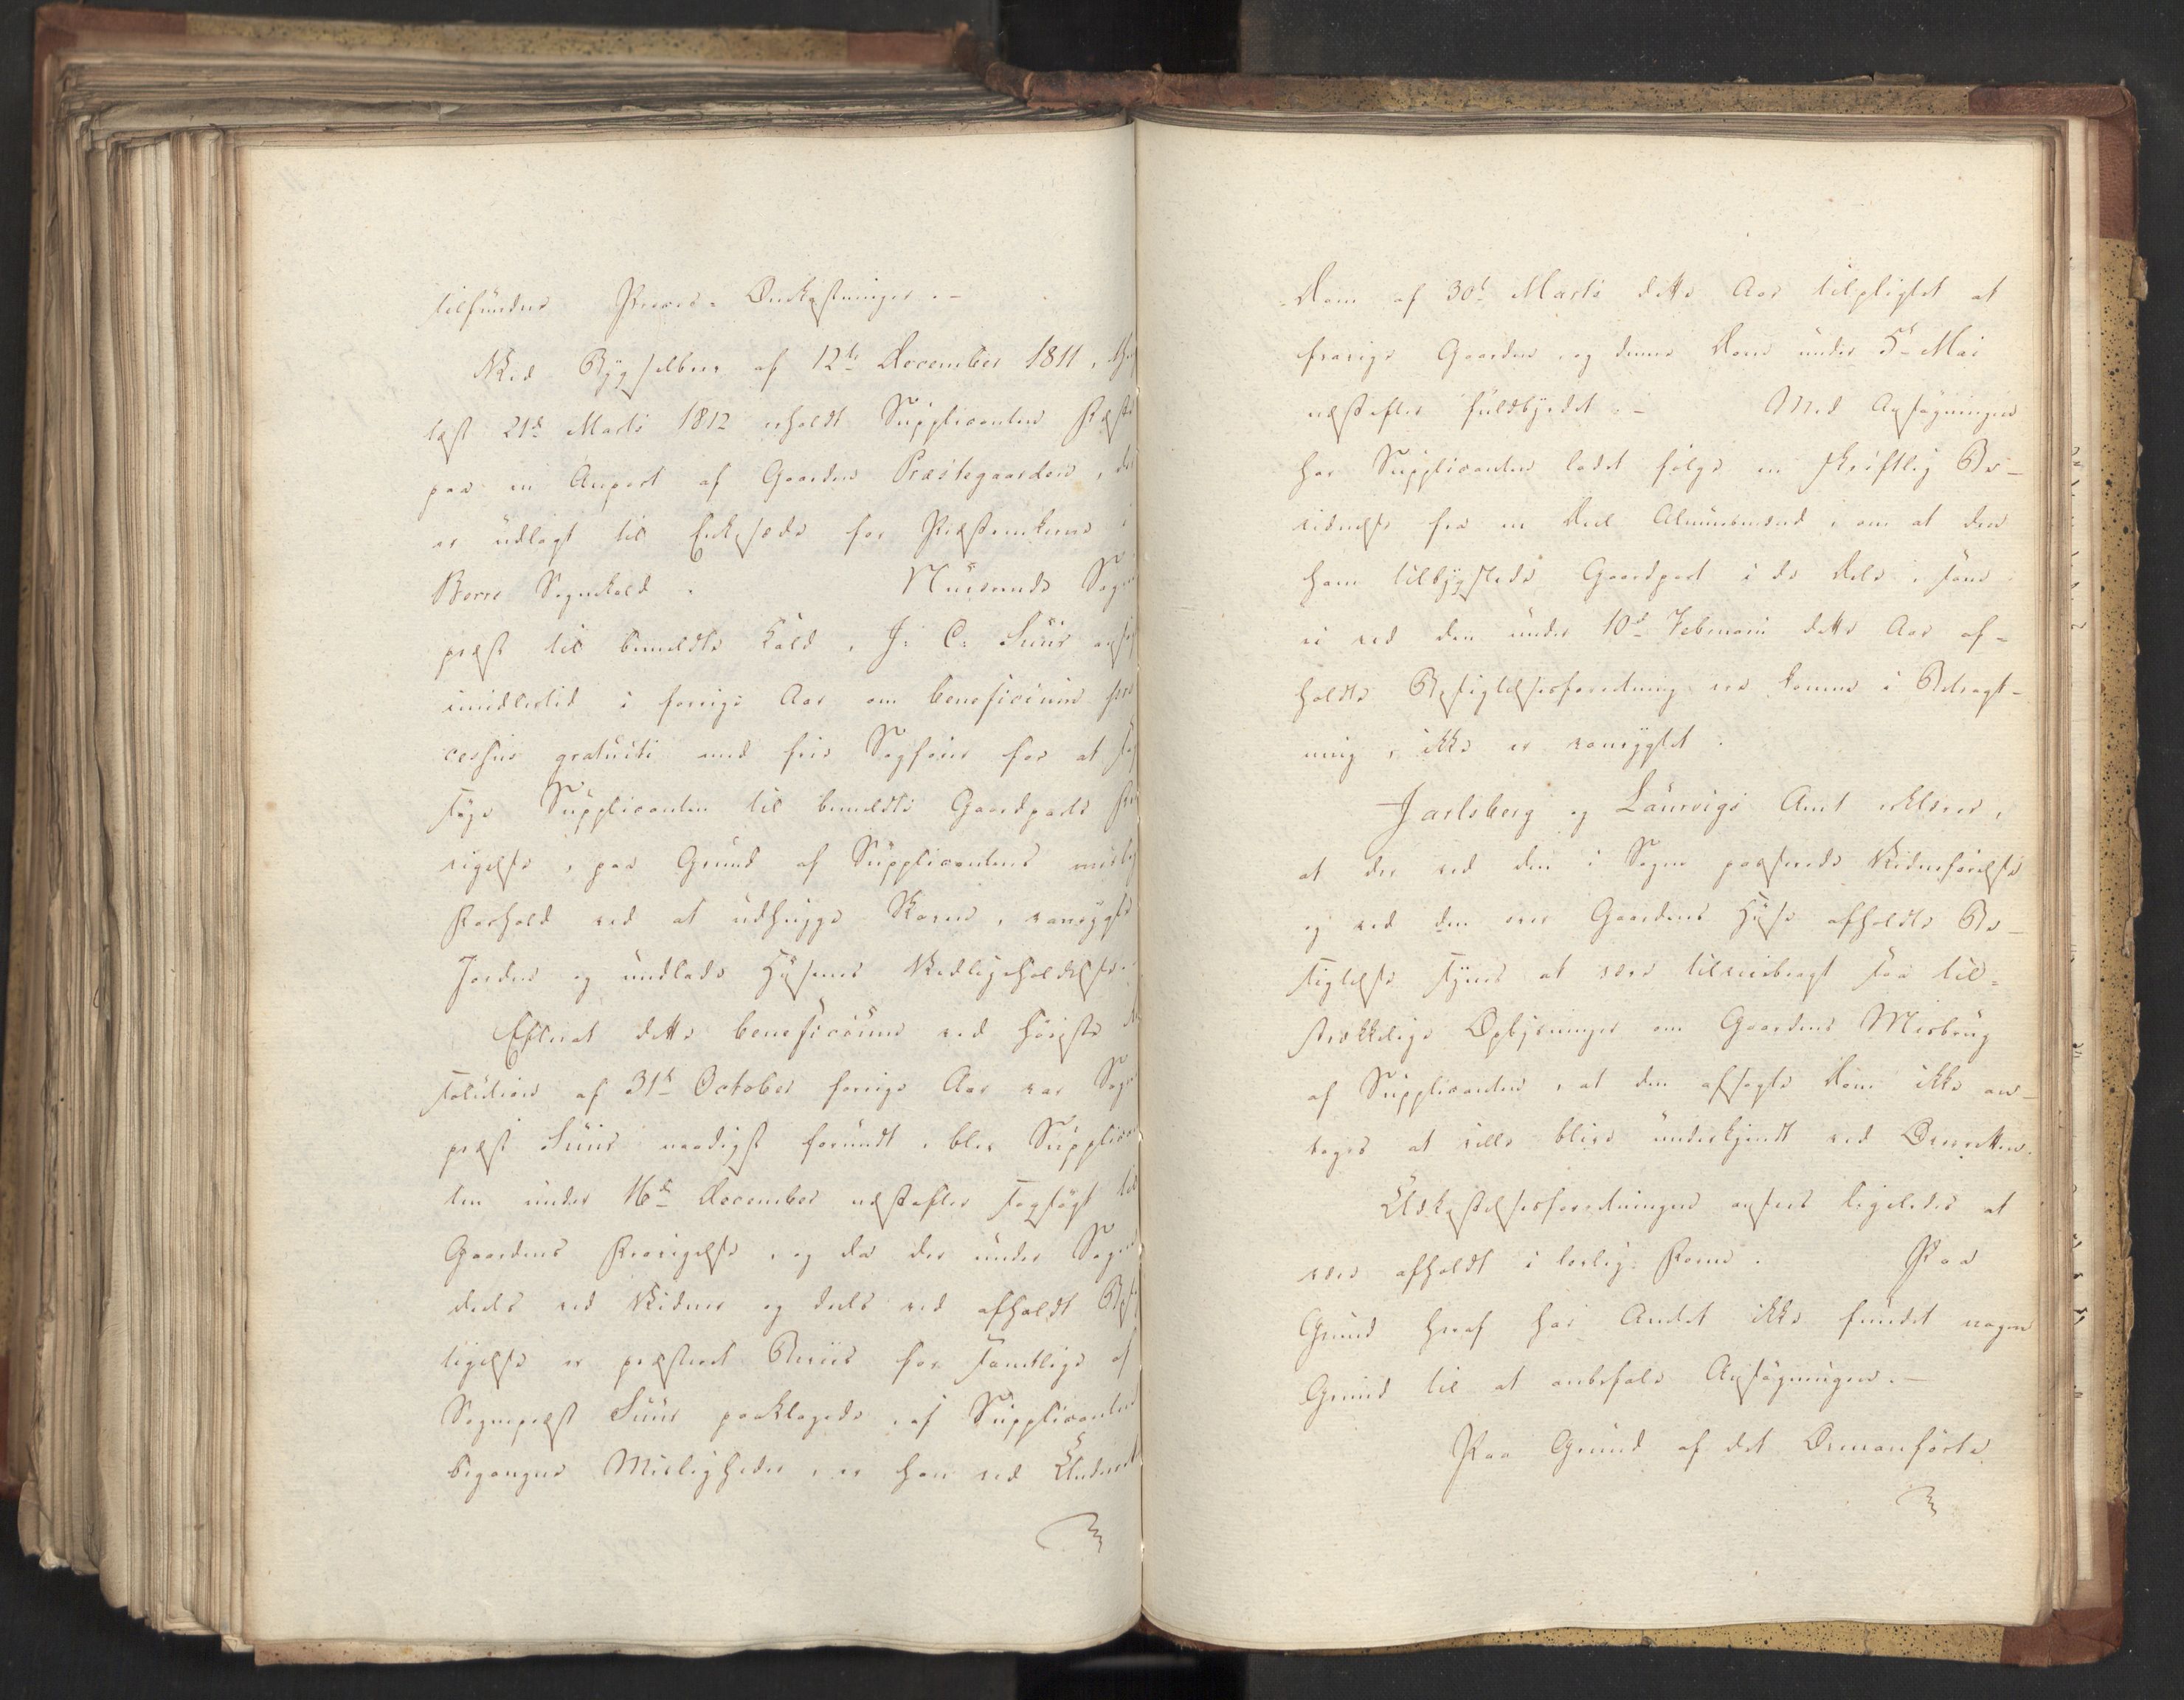 tilfundne Proces-Omkostninger. -
Ved Bygselbrev af 12te December 1811, thing-
læst 21de Marts 1812 erholdt Supplicanten Fæste
paa en Anpart af Gaarden Præstegaarden, der
er udlagt til Enkesæde for Præsteenkerne i
Borre Sognekald. Nuværende Sogne-
præst til bemeldte Kald, J: C: Suur ansøgte
imidlertid i forrige Aar om beneficium pro-
cessus gratuiti med frie Sagfører for at sag-
søge Supplicanten til bemeldte Gaardparts Fra-
vigelse, paa Grund af Supplicantens mislige
Forhold ved at udhugge Skoven, vanrygte
Jorden og undlade Husenes Vedligeholdelse.
Efterat dette beneficium ved høieste Re-
solution af 31te October forrige Aar var Sogne-
præst Suur naadigst forundt, blev Supplican-
ten under 16de December næstefter sagsøgt til
Gaardens Fravigelse, og da der under Sagen
deels ved Vidner og deels ved afholdt Besig-
tigelse er præsteret Beviis for samtlige af
Sognepræst Suur paaklagede, af Supplicanten
begangne Misligheder, er han ved Underrets
Dom af 30te Marts dette Aar tilpligtet at
fravige Gaarden og denne Dom under 5te Mai
næstefter fuldbyrdet. - Med Ansøgningen
har Supplicanten ladet følge en skriftlig Be-
vidnelse fra en Deel Almuesmænd, om at den
ham tilbygslede Gaardpart i de Dele, som
ei ved den under 10de Februarii dette Aar af-
holdte Besigtelsesforretning ere komne i Betragt-
ning, ikke er vanrygtet.
Jarlsberg og Laurvigs Amt erklærer,
at der ved den i Sagen passerede Vidneførsel
og ved den over Gaardens Huse afholdte Be-
sigtelse synes at være tilveiebragt saa til-
strækkelige Oplysninger om Gaardens Misbrug
af Supplicanten, at den afsagte Dom ikke an-
tages at ville blive underkjendt ved Overretten.
Udkastelsesforretningen ansees ligeledes at
være afholdt i lovlig Form. Paa
Grund heraf har Amtet ikke fundet nogen
Grund til at anbefale Ansøgningen. -
Paa Grund af det Ovenanførte